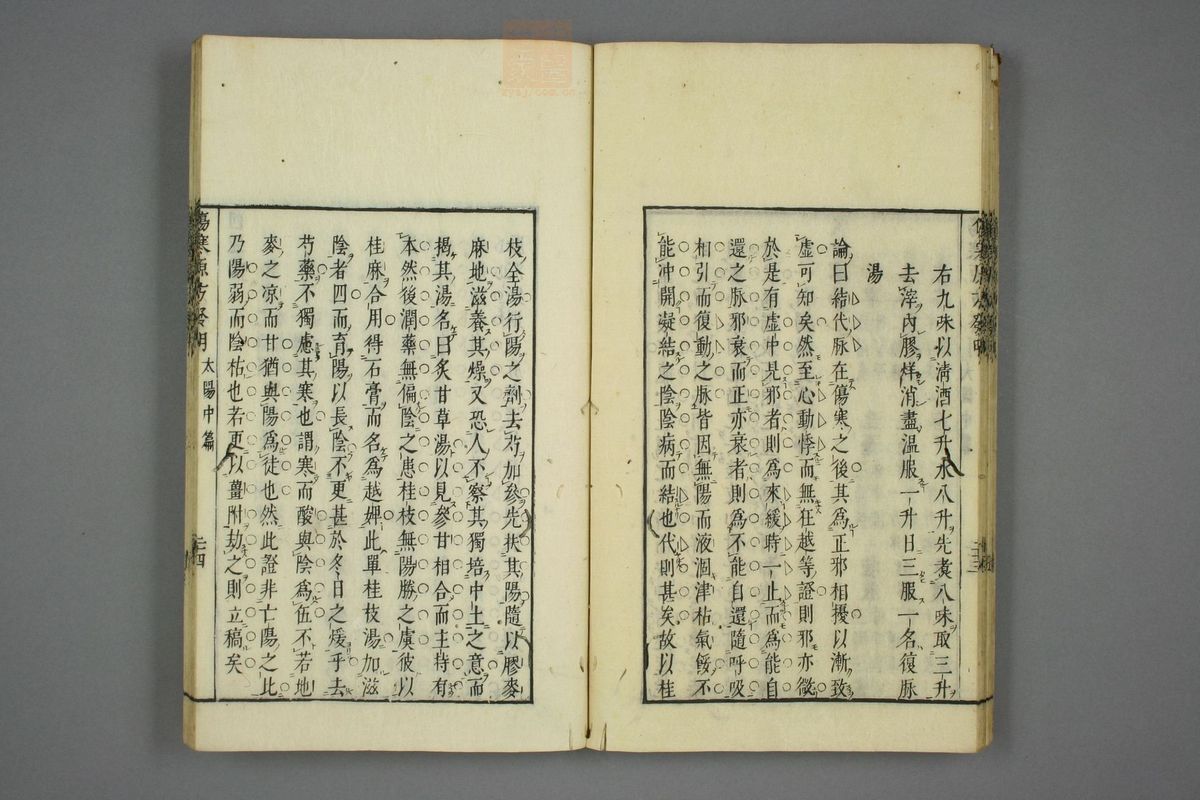 右九味以清酒七升水八升先煑八味取三升
去滓內膠烊消盡溫服一升日三服一名復脉
湯
論曰結代脉在傷寒之後其爲正邪相擾以漸致
虛可知矣然至心動悸而無狂越等證則邪亦微
於是有虛中見邪者則爲來緩時一止而爲能自
還之脉邪衰而正亦衰者則爲不能自還隨呼吸
相引而復動之脉皆因無陽而液涸津枯氣餒不
能冲開凝結之陰陰病而結也代則甚矣故以桂
枝全湯行陽之劑去芍加參先扶其陽隨以膠麥
麻地滋養其燥又恐人不察其獨培中土之意而
揭其湯名曰炙甘草湯以見參甘相合而主持有
本然後潤藥無偏陰之患桂枝無陽勝之虞彼以
桂麻合用得石膏而名爲越婢此單桂枝湯加滋
陰者四而育陽以長陰不更甚於冬日之煖乎去
芍藥不獨慮其寒也謂寒而酸與陰爲伍不若地
麥之凉而甘猶與陽爲徒也然此證非亡陽之比
乃陽弱而陰枯也若更以薑附劫之則立稿矣
傷寒源方發明 太陽中篇 二四
zysj.com.cn